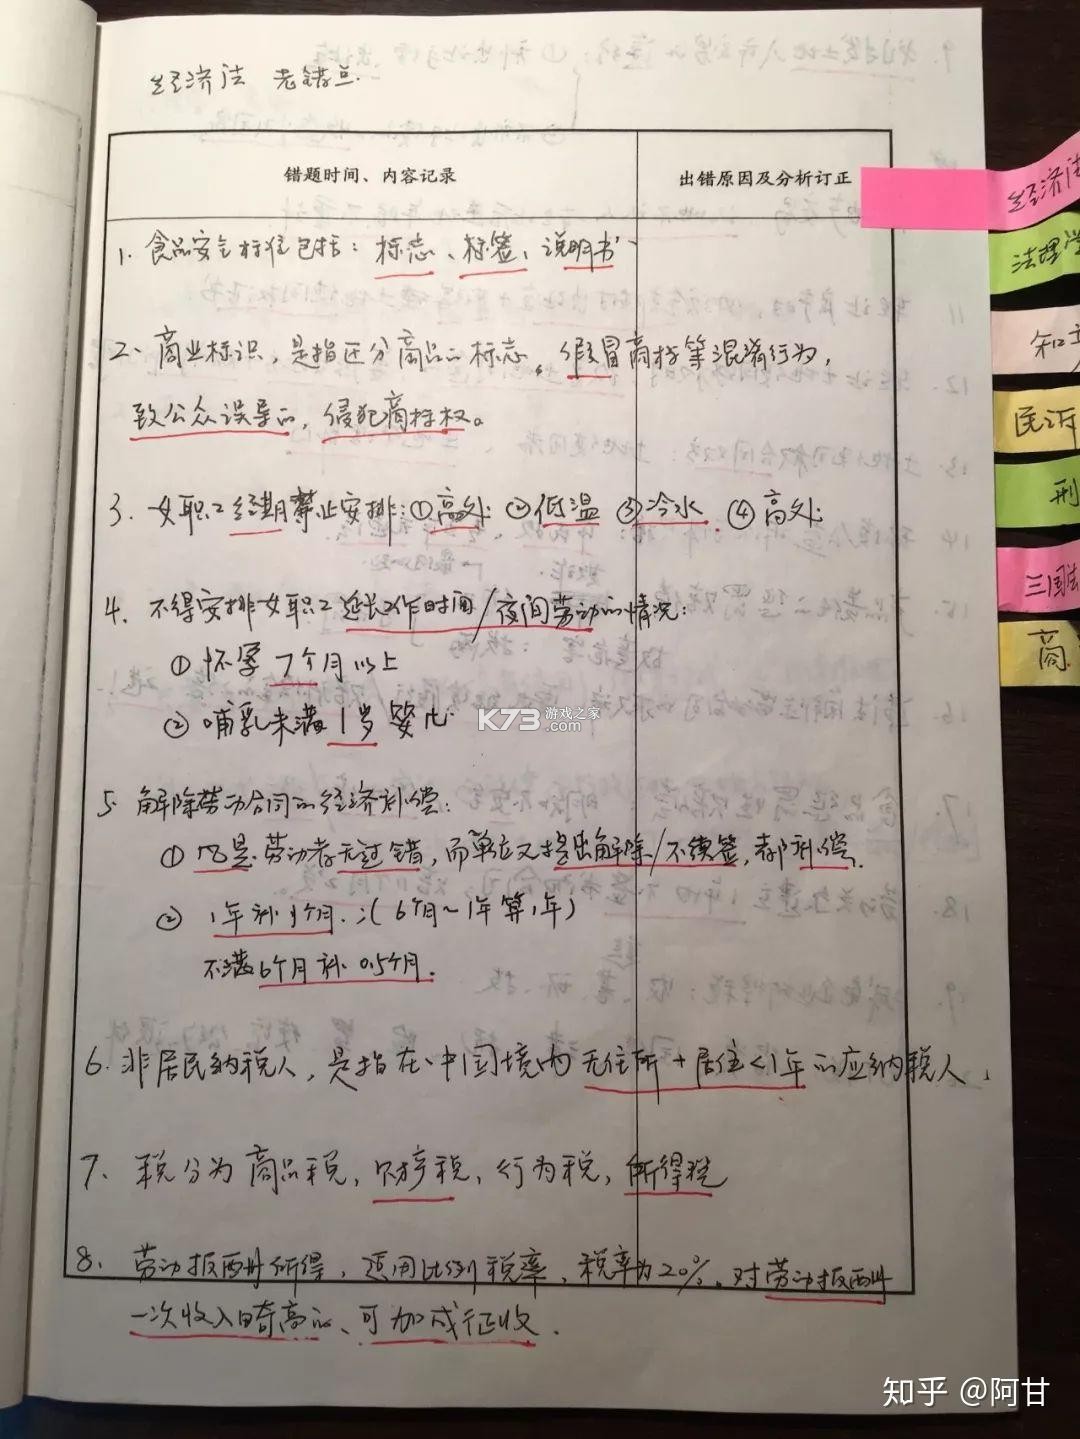 经济法 老错点.
错题时间、内容记录
出错原因及分析订正
1. 食品安全标准包括：标志、标签、说明书
2、商业标识，是指区分商品的标志。假冒商标等混淆行为，
致公众误导的，侵犯商标权。
3. 女职工经期禁止安排：①高处 ②低温 ③冷水. ④高处
4. 不得安排女职工延长工作时间/夜间劳动的情况：
① 怀孕7个月以上
② 哺乳未满1岁婴儿
5. 解除劳动合同的经济补偿：
① 凡是劳动者无过错，而单位又提出解除/不续签，都补偿.
② 1年补1个月.：(6个月~1年算1年)
不满6个月补0.5个月.
6. 非居民纳税人，是指在中国境内无住所+居住<1年的应纳税人，
7、税分为商品税，财产税，行为税，所得税
8、劳动报酬所得，适用比例税率，税率为20%。对劳动报酬
一次收入畸高的、可加成征收.
经济法
法理学
知
民诉
刑
三国法
商
K73 游戏之家
.com
知乎 @阿甘